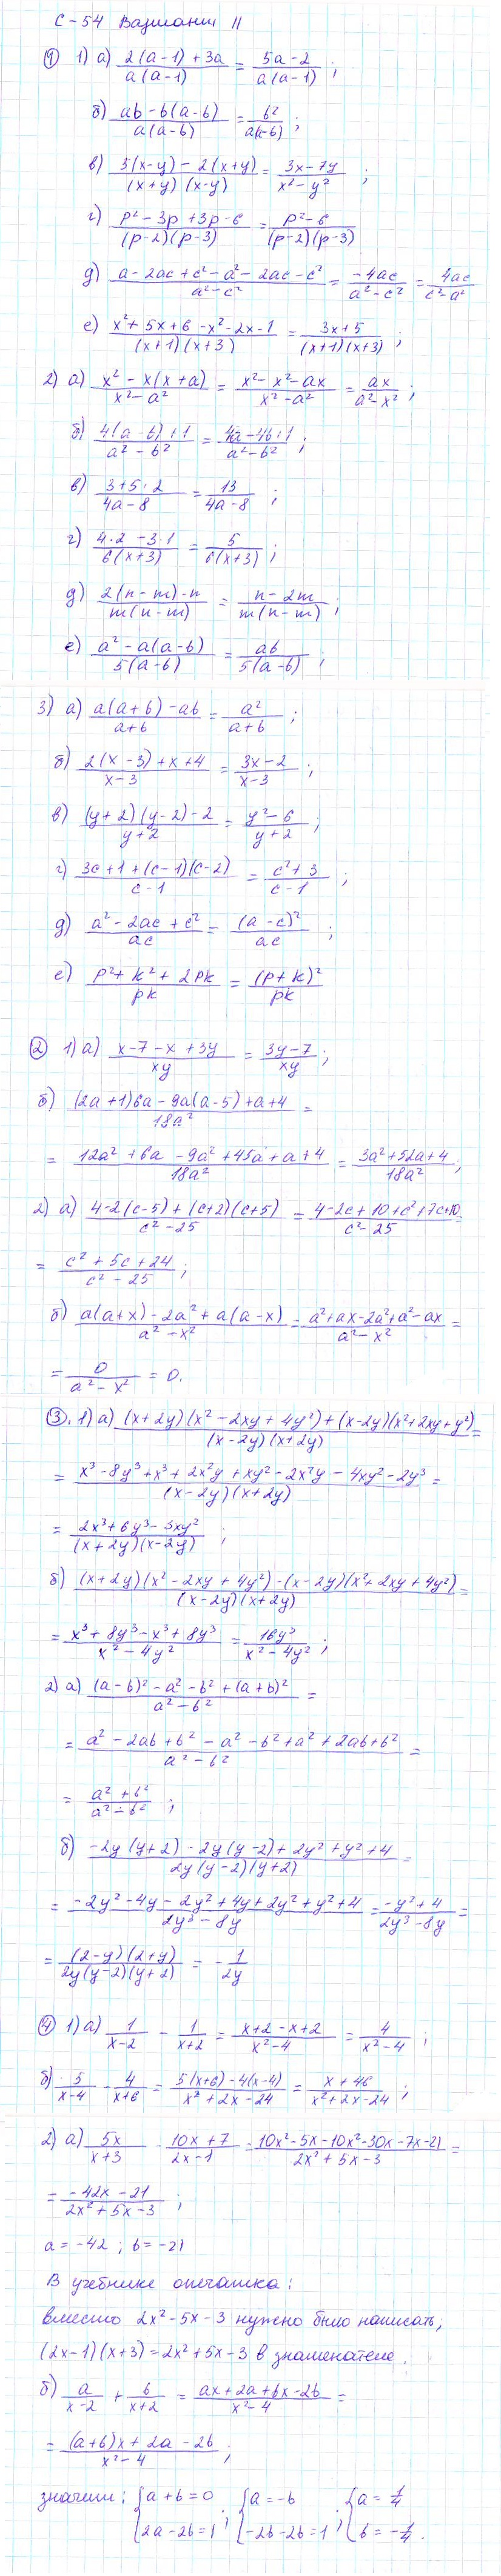 С-54 Вариант II
① 1) а) (2(a-1)+3a)/(a(a-1)) = (5a-2)/(a(a-1)) ;
б) (ab-b(a-b))/(a(a-b)) = b²/(a(a-b)) ;
в) (5(x-y)-2(x+y))/((x+y)(x-y)) = (3x-7y)/(x²-y²) ;
г) (p²-3p+3p-6)/((p-2)(p-3)) = (p²-6)/((p-2)(p-3))
д) (a-2ac+c²-a²-2ac-c²)/(a²-c²) = (-4ac)/(a²-c²) = 4ac/(c²-a²)
е) (x²+5x+6-x²-2x-1)/((x+1)(x+3)) = (3x+5)/((x+1)(x+3)) ;
2) а) (x²-x(x+a))/(x²-a²) = (x²-x²-ax)/(x²-a²) = ax/(a²-x²) ;
б) (4(a-b)+1)/(a²-b²) = (4a-4b+1)/(a²-b²) ;
в) (3+5·2)/(4a-8) = 13/(4a-8) ;
г) (4·2-3·1)/(6(x+3)) = 5/(6(x+3)) ;
д) (2(n-m)-n)/(m(n-m)) = (n-2m)/(m(n-m)) ;
е) (a²-a(a-b))/(5(a-b)) = ab/(5(a-b)) ;
3) а) (a(a+b)-ab)/(a+b) = a²/(a+b) ;
б) (2(x-3)+x+4)/(x-3) = (3x-2)/(x-3) ;
в) ((y+2)(y-2)-2)/(y+2) = (y²-6)/(y+2) ;
г) (3c+1+(c-1)(c-2))/(c-1) = (c²+3)/(c-1) ;
д) (a²-2ac+c²)/(ac) = (a-c)²/(ac) ;
е) (p²+k²+2pk)/(pk) = (p+k)²/(pk)
② 1) а) (x-7-x+3y)/(xy) = (3y-7)/(xy) ;
б) ((2a+1)6a-9a(a-5)+a+4)/(18a²) =
= (12a²+6a-9a²+45a+a+4)/(18a²) = (3a²+52a+4)/(18a²) ;
2) а) (4-2(c-5)+(c+2)(c+5))/(c²-25) = (4-2c+10+c²+7c+10)/(c²-25) =
= (c²+5c+24)/(c²-25) ;
б) (a(a+x)-2a²+a(a-x))/(a²-x²) = (a²+ax-2a²+a²-ax)/(a²-x²) =
= 0/(a²-x²) = 0.
③. 1) а) ((x+2y)(x²-2xy+4y²)+(x-2y)(x²+2xy+y²))/((x-2y)(x+2y)) =
= (x³-8y³+x³+2x²y+xy²-2x²y-4xy²-2y³)/((x-2y)(x+2y)) =
= (2x³+6y³-3xy²)/((x+2y)(x-2y)) ;
б) ((x+2y)(x²-2xy+4y²)-(x-2y)(x²+2xy+4y²))/((x-2y)(x+2y)) =
= (x³+8y³-x³+8y³)/(x²-4y²) = 16y³/(x²-4y²) ;
2) а) ((a-b)²-a²-b²+(a+b)²)/(a²-b²) =
= (a²-2ab+b²-a²-b²+a²+2ab+b²)/(a²-b²) =
= (a²+b²)/(a²-b²) ;
б) (-2y(y+2)-2y(y-2)+2y²+y²+4)/(2y(y-2)(y+2)) =
= (-2y²-4y-2y²+4y+2y²+y²+4)/(2y³-8y) = (-y²+4)/(2y³-8y) =
= ((2-y)(2+y))/(2y(y-2)(y+2)) = -1/(2y)
④ 1) а) 1/(x-2) - 1/(x+2) = (x+2-x+2)/(x²-4) = 4/(x²-4) ;
б) 5/(x-4) - 4/(x+6) = (5(x+6)-4(x-4))/(x²+2x-24) = (x+46)/(x²+2x-24) ;
2) а) 5x/(x+3) - (10x+7)/(2x-1) = (10x²-5x-10x²-30x-7x-21)/(2x²+5x-3) =
= (-42x-21)/(2x²+5x-3) ;
a = -42 ; b = -21
В учебнике опечатка:
вместо 2x²-5x-3 нужно было написать,
(2x-1)(x+3) = 2x²+5x-3 в знаменателе.
б) a/(x-2) + b/(x+2) = (ax+2a+bx-2b)/(x²-4) =
= ((a+b)x+2a-2b)/(x²-4) ;
значит: {a+b=0 {a=-b {a=1/4
{2a-2b=1 ; {-2b-2b=1 ; {b=-1/4.